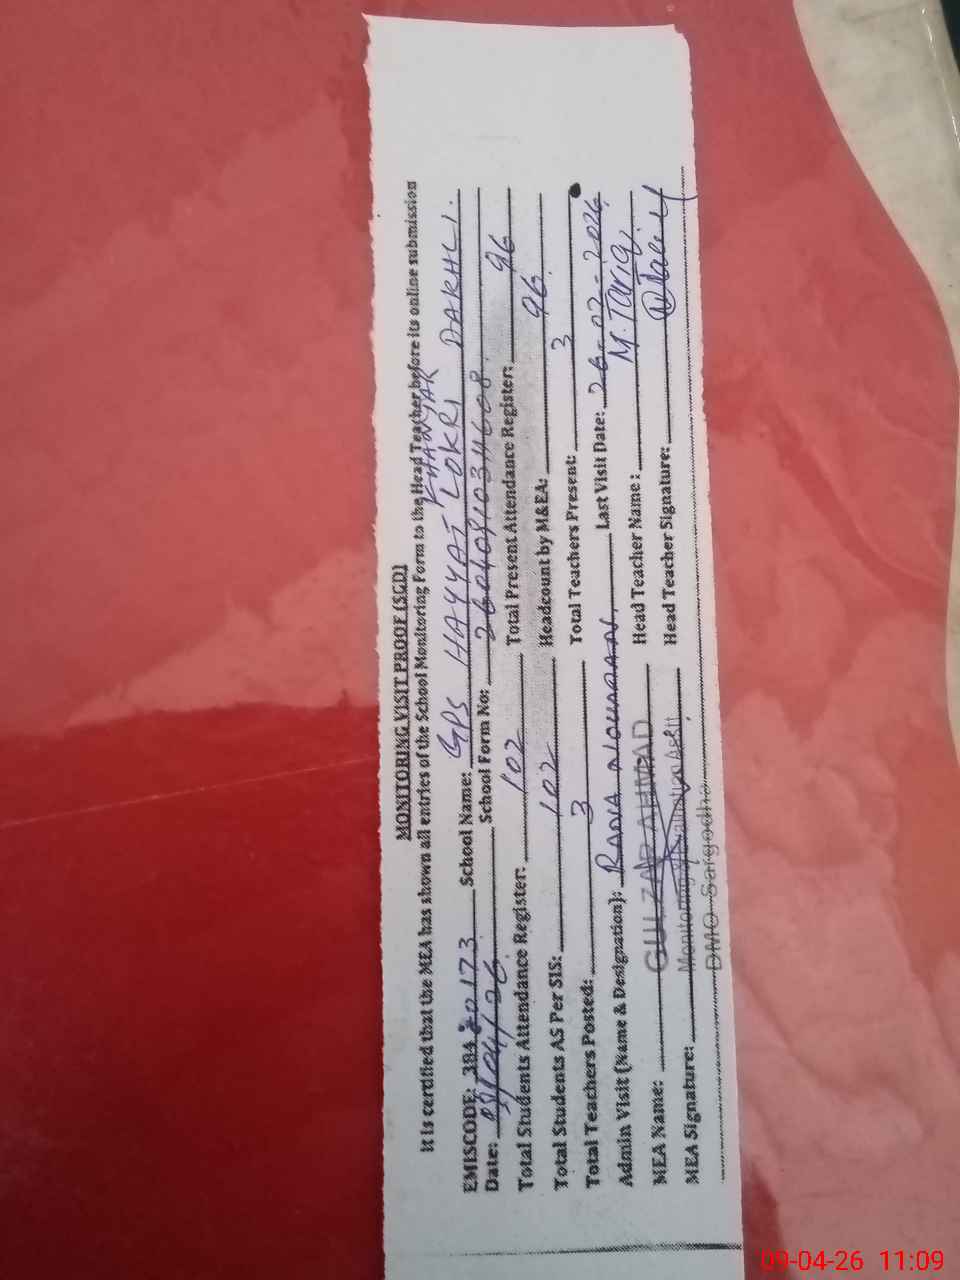 MONITORING VISIT PROOF (SGD)
It is certified that the MEA has shown all entries of the School Monitoring Form to the Head Teacher before its online submission
KHANJAR
EMISCODE: 38420173 School Name: GPS HAYYAT LOKRI DAKHLI.
Date: 09/04/26 School Form No:
Total Students Attendance Register: 102 Total Present Attendance Register: 96
Total Students AS Per SIS: 102 Headcount by M&EA: 96
Total Teachers Posted: 3 Total Teachers Present: 3
Admin Visit (Name & Designation): RANA NOUMAAN Last Visit Date: 26-02-2026
MEA Name: GULZAR AHMAD Head Teacher Name: M. Tariq
MEA Signature: Monitoring & Evaluation Asstt Head Teacher Signature:
DMO Sargodha
09-04-26 11:09